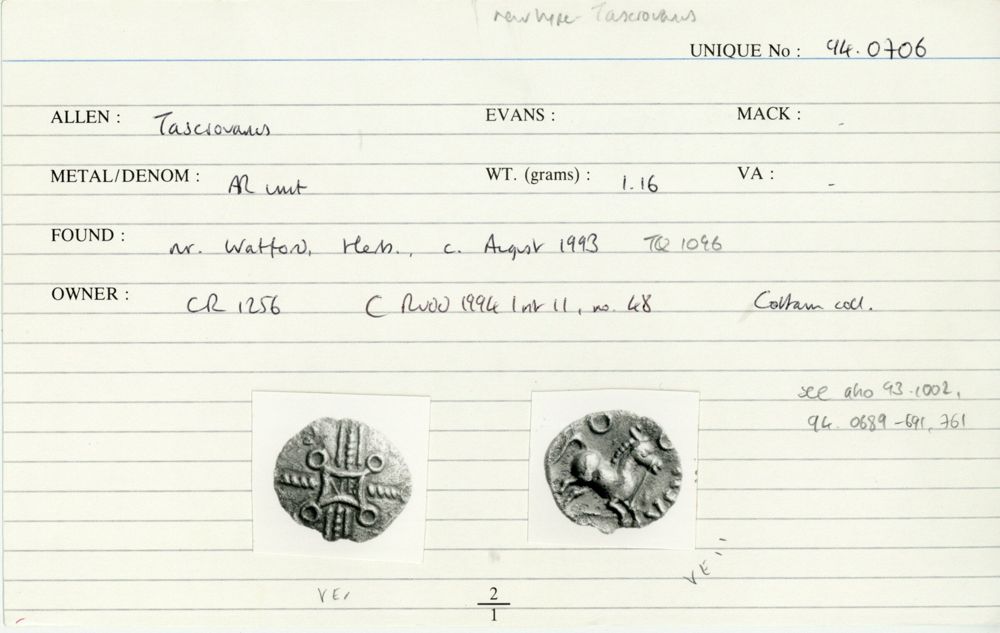 new type - Tasciovanus
UNIQUE No : 94.0706
ALLEN : Tasciovanus EVANS : MACK : -
METAL/DENOM : AR unit WT. (grams) : 1.16 VA : -
FOUND : nr. Watford, Herts., c. August 1993 TQ 1096
OWNER : CR 1256 C RUDD 1994 list 11, no. 48 Cottam coll.
see also 93.1002,
94.0689-691, 761
VE
VE
2
1